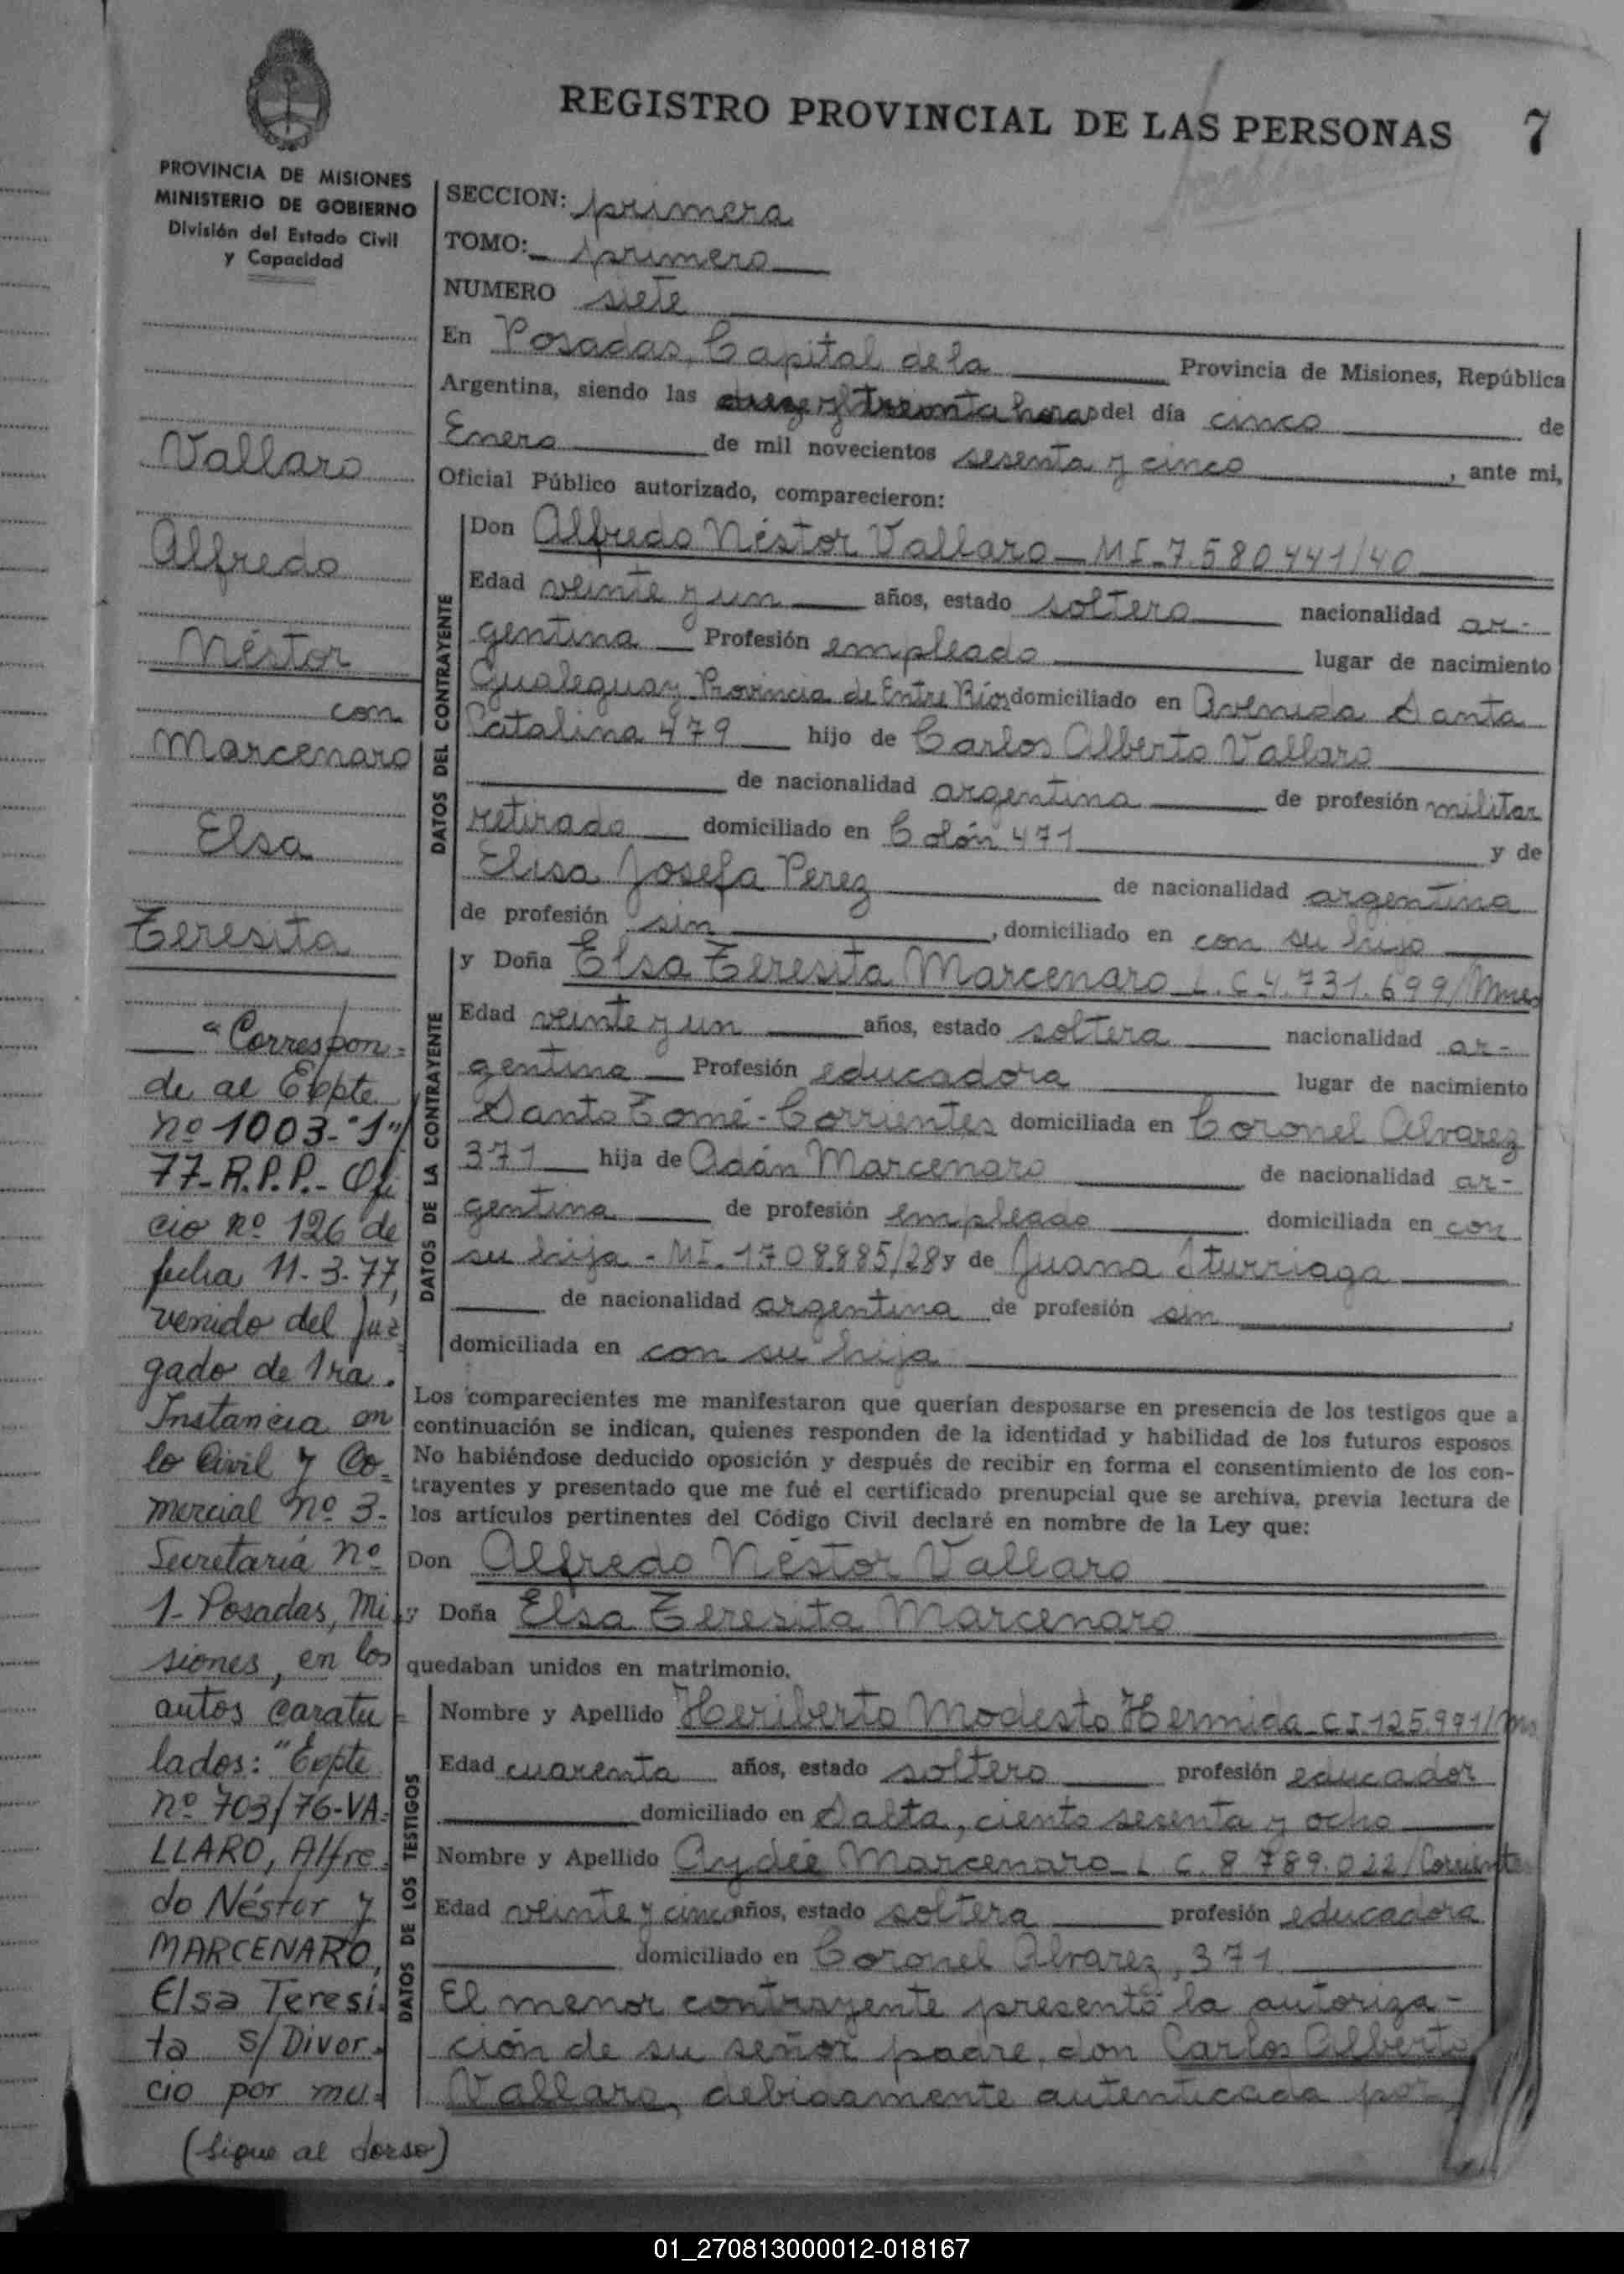 REGISTRO PROVINCIAL DE LAS PERSONAS 7
PROVINCIA DE MISIONES
MINISTERIO DE GOBIERNO
División del Estado Civil
y Capacidad
Vallaro
Alfredo
Néstor
con
Marcenaro
Elsa
Teresita
"Correspon-
de al Expte
nº 1003-"1"/
77-R.P.P.- Ofi
cio nº 126 de
fecha 11-3-77,
venido del Juz
gado de 1ra.
Instancia en
lo Civil y Co-
mercial nº 3-
Secretaría nº
1- Posadas, Mi
siones, en los
autos caratu-
lados: "Expte
nº 703/76-VA-
LLARO, Alfre-
do Néstor y
MARCENARO,
Elsa Teresi-
ta s/Divor-
cio por mu-
(Sigue al dorso)
SECCION: primera
TOMO: primero
NUMERO siete
En Posadas, Capital de la Provincia de Misiones, República
Argentina, siendo las diez y treinta horas del día cinco de
Enero de mil novecientos sesenta y cinco, ante mi,
Oficial Público autorizado, comparecieron:
DATOS DEL CONTRAYENTE
Don Alfredo Néstor Vallaro - MI-7.580441/40
Edad veinte y un años, estado soltero nacionalidad ar-
gentina Profesión empleado lugar de nacimiento
Gualeguay Provincia de Entre Ríos domiciliado en Avenida Santa
Catalina 479 hijo de Carlos Alberto Vallaro
de nacionalidad argentina de profesión militar
retirado domiciliado en Colón 471 y de
Elisa Josefa Perez de nacionalidad argentina
de profesión sin, domiciliado en con su hijo
DATOS DE LA CONTRAYENTE
y Doña Elsa Teresita Marcenaro L.C 4.731.699/Mnes
Edad veinte y un años, estado soltera nacionalidad ar-
gentina Profesión educadora lugar de nacimiento
Santo Tomé - Corrientes domiciliada en Coronel Alvarez
371 hija de Adán Marcenaro de nacionalidad ar-
gentina de profesión empleado domiciliada en con
su hija - MI. 1708.885/28 y de Juana Iturriaga
de nacionalidad argentina de profesión sin,
domiciliada en con su hija
Los comparecientes me manifestaron que querían desposarse en presencia de los testigos que a
continuación se indican, quienes responden de la identidad y habilidad de los futuros esposos
No habiéndose deducido oposición y después de recibir en forma el consentimiento de los con-
trayentes y presentado que me fué el certificado prenupcial que se archiva, previa lectura de
los artículos pertinentes del Código Civil declaré en nombre de la Ley que:
Don Alfredo Néstor Vallaro
y Doña Elsa Teresita Marcenaro
quedaban unidos en matrimonio.
DATOS DE LOS TESTIGOS
Nombre y Apellido Heriberto Modesto Hermida - C.I. 125.991/Mns
Edad cuarenta años, estado soltero profesión educador
domiciliado en Salta, ciento sesenta y ocho
Nombre y Apellido Aydée Marcenaro L.C. 8.789.022/Corrientes
Edad veinte y cinco años, estado soltera profesión educadora
domiciliado en Coronel Alvarez, 371
El menor contrayente presentó la autoriza-
ción de su señor padre, don Carlos Alberto
Vallaro, debidamente autenticada por
01_270813000012-018167